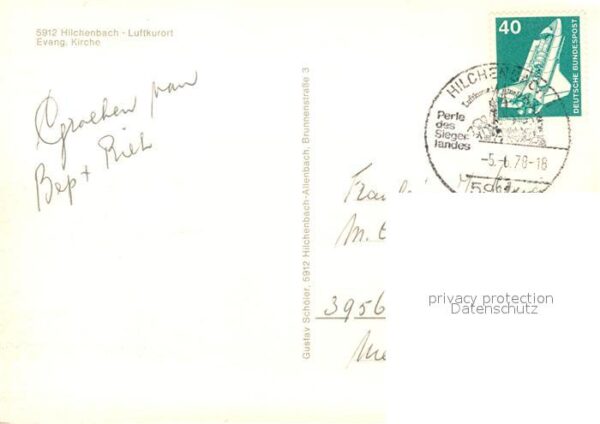 5912 Hilchenbach - Luftkurort
Evang. Kirche
Groeten van
Bep + Rieh
Gustav Schöler, 5912 Hilchenbach-Allenbach, Brunnenstraße 3
40
DEUTSCHE BUNDESPOST
HILCHENBACH
Perle
des
Sieger-
landes
-5.-6.78-18
591
Fam
M.
3956
privacy protection
Datenschutz